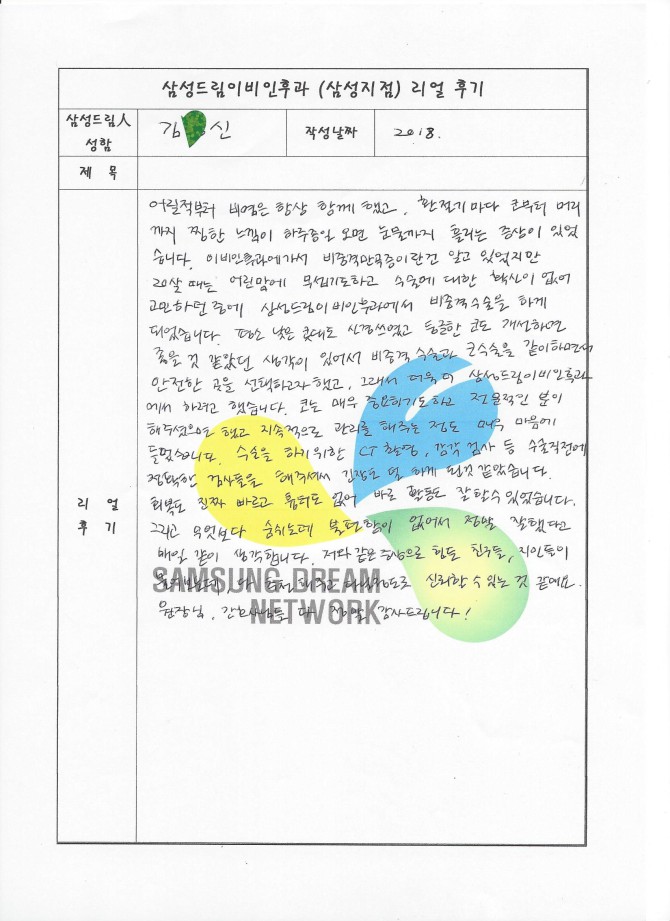 삼성드림이비인후과 (삼성지점) 리얼 후기
삼성드림人
성함
김 신
작성날짜
2018.
제 목
어릴적부터 비염은 항상 함께 했고, 환절기마다 코부터 머리
까지 찡한 느낌이 하루종일 오면 눈물까지 흘리는 증상이 있었
습니다. 이비인후과에가서 비중격만곡증이란건 알고 있었지만
20살 때는 어린맘에 무섭기도하고 수술에 대한 확신이 없어
고민하던 중에 삼성드림이비인후과에서 비중격수술을 하게
되었습니다. 평소 낮은 콧대도 신경쓰였고 뭉글한 코도 개선하면
좋을 것 같았던 생각이 있어서 비중격 수술과 코수술을 같이하면서
안전한 곳을 선택하고자 했고, 그래서 더욱 더 삼성드림이비인후과
에서 하려고 했습니다. 코는 매우 중요하기도하고 전문적인 분이
해주셨으면 했고 지속적으로 관리를 해주는 점도 매우 마음에
들었습니다. 수술을 하기위한 CT촬영, 감각 검사 등 수술직전에
정확한 검사들을 해주셔서 긴장도 덜 하게 된것 같았습니다.
회복도 진짜 빠르고 흉터도 없어 바로 활동도 잘할수 있었습니다.
그리고 무엇보다 숨쉬는데 불편함이 없어서 정말 잘했다고
매일 같이 생각합니다. 저와 같은 증상으로 힘든 친구들, 지인들이
신뢰할 수 있는 것 같애요.
원장님, 간호사님들 다 정말 감사드립니다!
리 얼
후 기
SAMSUNG DREAM
NETWORK